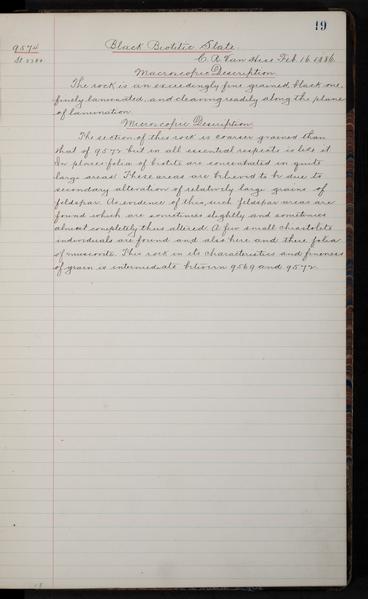 19
9574
Black Biotitic Slate.
C. R. Van Hise Feb. 16 1886.
Macroscopic Description
The rock is an exceedingly fine grained, black one,
finely laminated, and cleaving readily along the plane
of lamination.
Microscopic Description
The section of this rock is coarser grained than
that of 9572 but in all essential respects is like it.
In places folia of biotite are concentrated in quite
large areas. These areas are believed to be due to
secondary alteration of relatively large grains of
feldspar. As evidence of this, such feldspar areas are
found which are sometimes slightly and sometimes
almost completely thus altered. A few small chiastolite
individuals are found and also here and there folia
of muscovite. This rock in its characteristics and fineness
of grain is intermediate between 9569 and 9572.